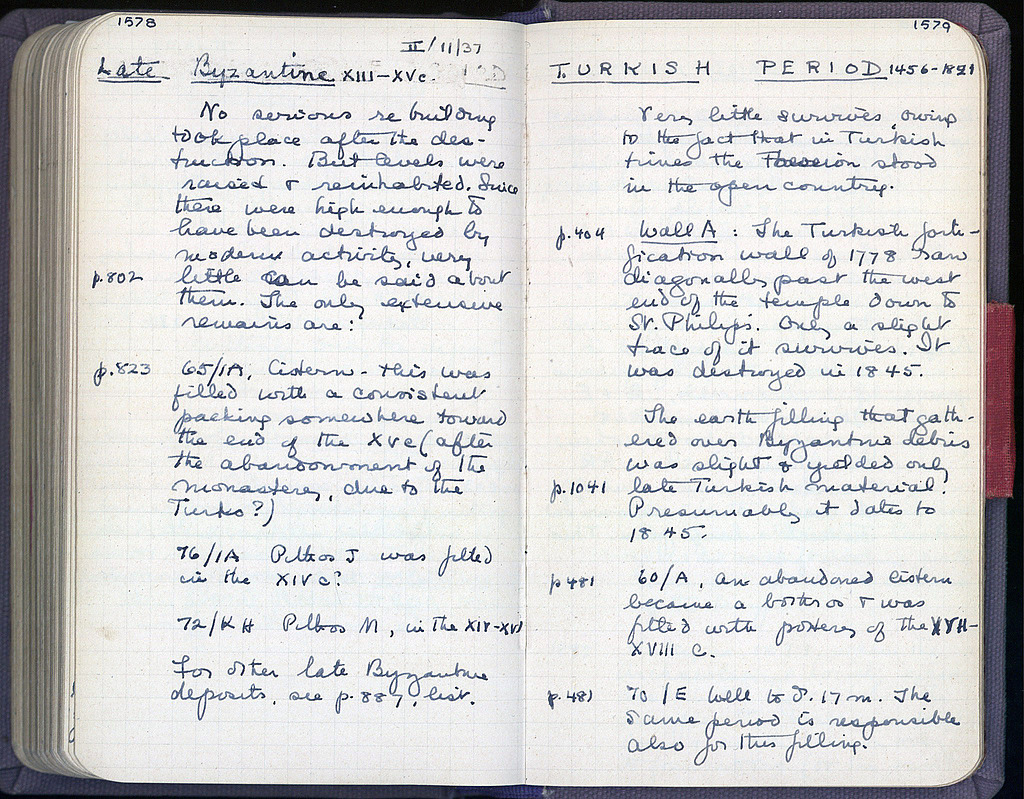 1578
II/11/37
Late Byzantine XIII-XVc.
No serious rebuilding
took place after the des-
truction. But levels were
raised & reinhabited. Since
these were high enough to
have been destroyed by
modern activity, very
p.802 little can be said about
them. The only extensive
remains are:
p.823 65/IA, Cistern - this was
filled with a consistent
packing somewhere toward
the end of the XVc (after
the abandonment of the
monastery, due to the
Turks?)
76/IA Pithos J was filled
in the XIVc?
72/KH Pithos M, in the XIV-XV
For other late Byzantine
deposits, see p.887, list.
1579
TURKISH PERIOD 1456-1821
Very little survives, owing
to the fact that in Turkish
times the Theseion stood
in the open country.
p.404 Wall A: The Turkish forti-
fication wall of 1778 ran
diagonally past the west
end of the temple down to
St. Philips. Only a slight
trace of it survives. It
was destroyed in 1845.
The earth filling that gath-
ered over Byzantine debris
was slight & yielded only
p.1041 late Turkish material.
Presumably it dates to
1845.
p481 60/A, an abandoned cistern
became a bothros & was
filled with pottery of the XVII-
XVIII c.
p.481 70/E Well to d. 17m. The
same period is responsible
also for this filling.